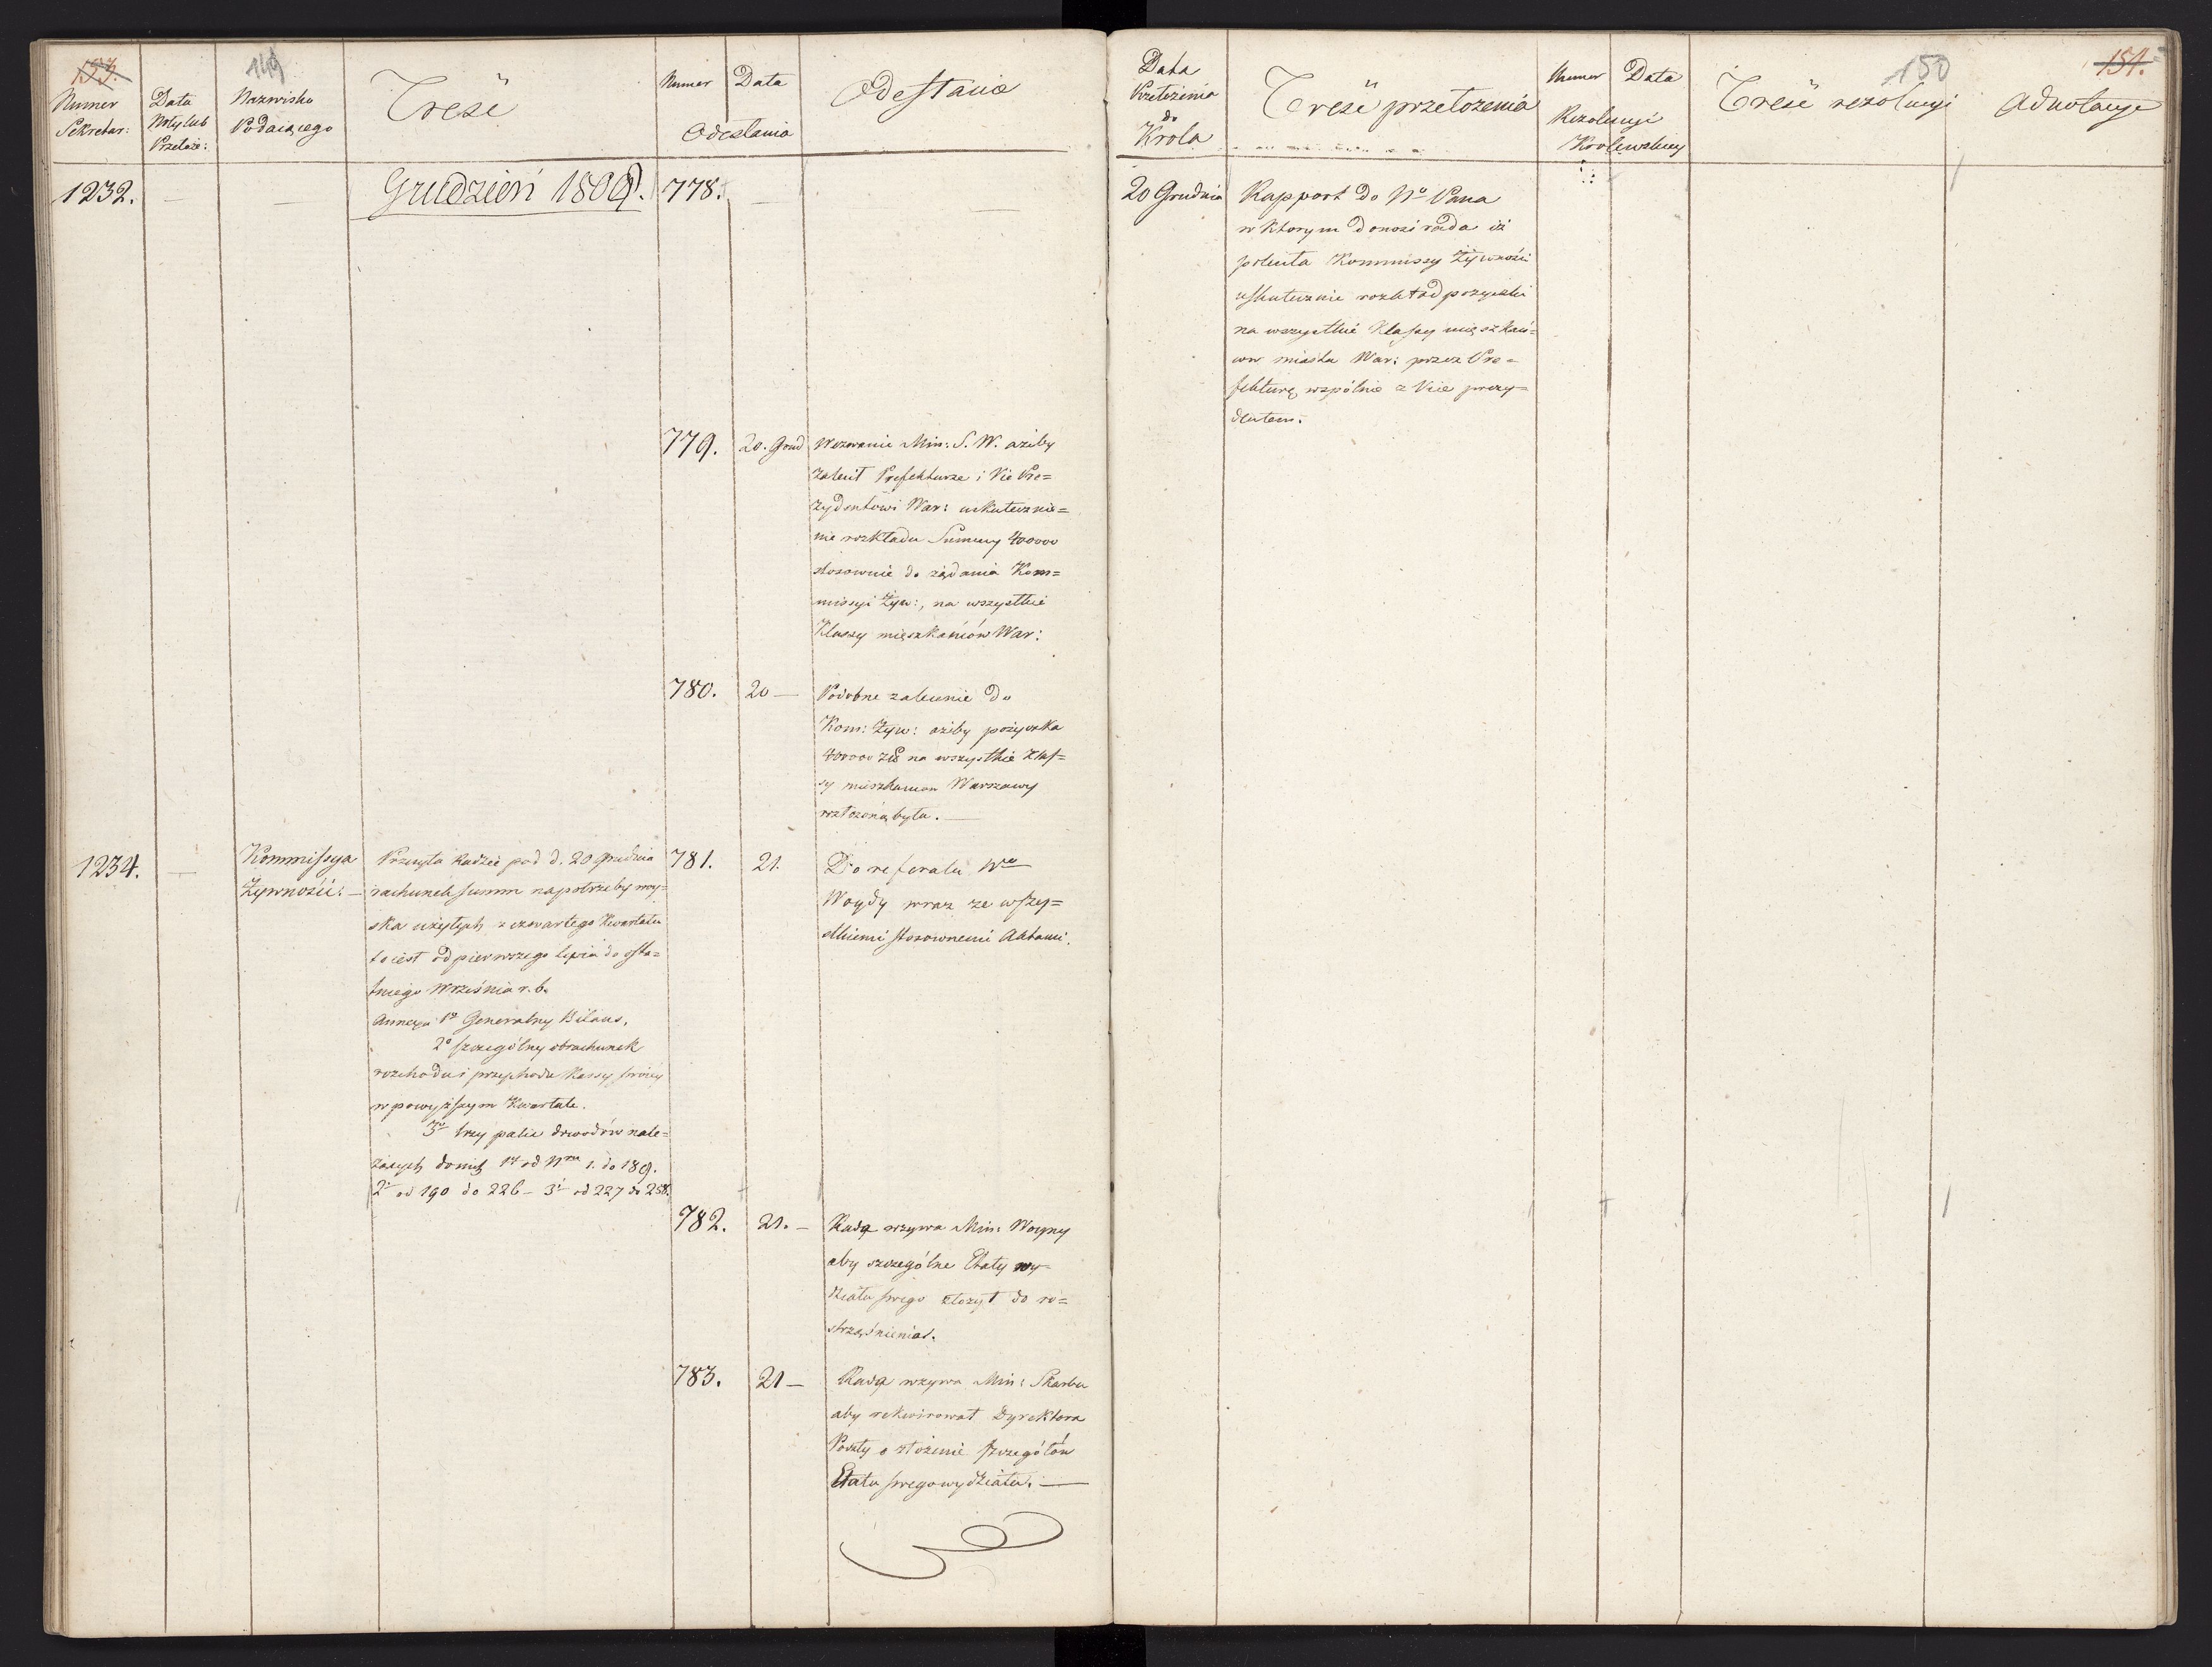 153.
149
Numer
Sekretar:
Data
Noty lub
Przełoże:
Nazwisko
Podaiącego
Treść
Numer Data
Odesłania
Odesłanie
1232. — —
Grudzień 1809.
778. — —
779. 20. Grud
Wezwanie Min: S. W. ażeby
zalecił Prefekturze i Vie Pre=
zydentowi War: uskutecznie=
nie rozkładu Summy 40000
stosownie do żądania Kom=
missyi Żyw:, na wszystkie
Klassy mięszkańców War:
780. 20 —
Podobne zalecenie do
Kom: Żyw: ażeby pożyczka
40000 zł na wszystkie Klas=
sy mieszkancow Warszawy
rozłożoną była. —
1234. —
Kommissya
Żywności: —
Przesyła Radzie pod d. 20 Grudnia
rachunek summ na potrzeby woy=
ska użytych z czwartego Kwartału
to iest od pierwszego lipca do osta=
tniego Września r. b.
Annexa 1º Generalny Bilans,
2º szczególny obrachunek
rozchodu i przychodu Kassy swoiey
w powyższym Kwartale.
3º trzy paki dowodów nale=
żących do nich 1ª od Nru 1. do 189.
2ª od 190 do 226 — 3ª od 227 do 258.
781. 21.
Do referatu Wo
Woydy wraz ze wszy=
stkiemi stosownemi Aktami.
782. 21. —
Rada wzywa Min: Woyny
aby szczególne Etaty wy=
działu swego złożył do ro=
strząśnienia.
783. 21 —
Rada wzywa Min: Skarbu
aby rekwirował Dyrektora
Poczty o złożenie szczegółów
Etatu swego wydziału. —
150
154.
Data
Przełożenia
do
Krola
Treść przełożenia
Numer Data
Rezolucyi
Krolewskiey
Treść rezolucyi
Adnotacye
20 Grudnia
Rapport do No Pana
w ktorym donosi rada iż
poleciła Kommissy Żywności
uskutecznić rozkład pożyczki
na wszystkie Klassy mięszkań=
cow miasta War: przez Pre=
fekturę wspólnie z Vice prezy=
dentem.